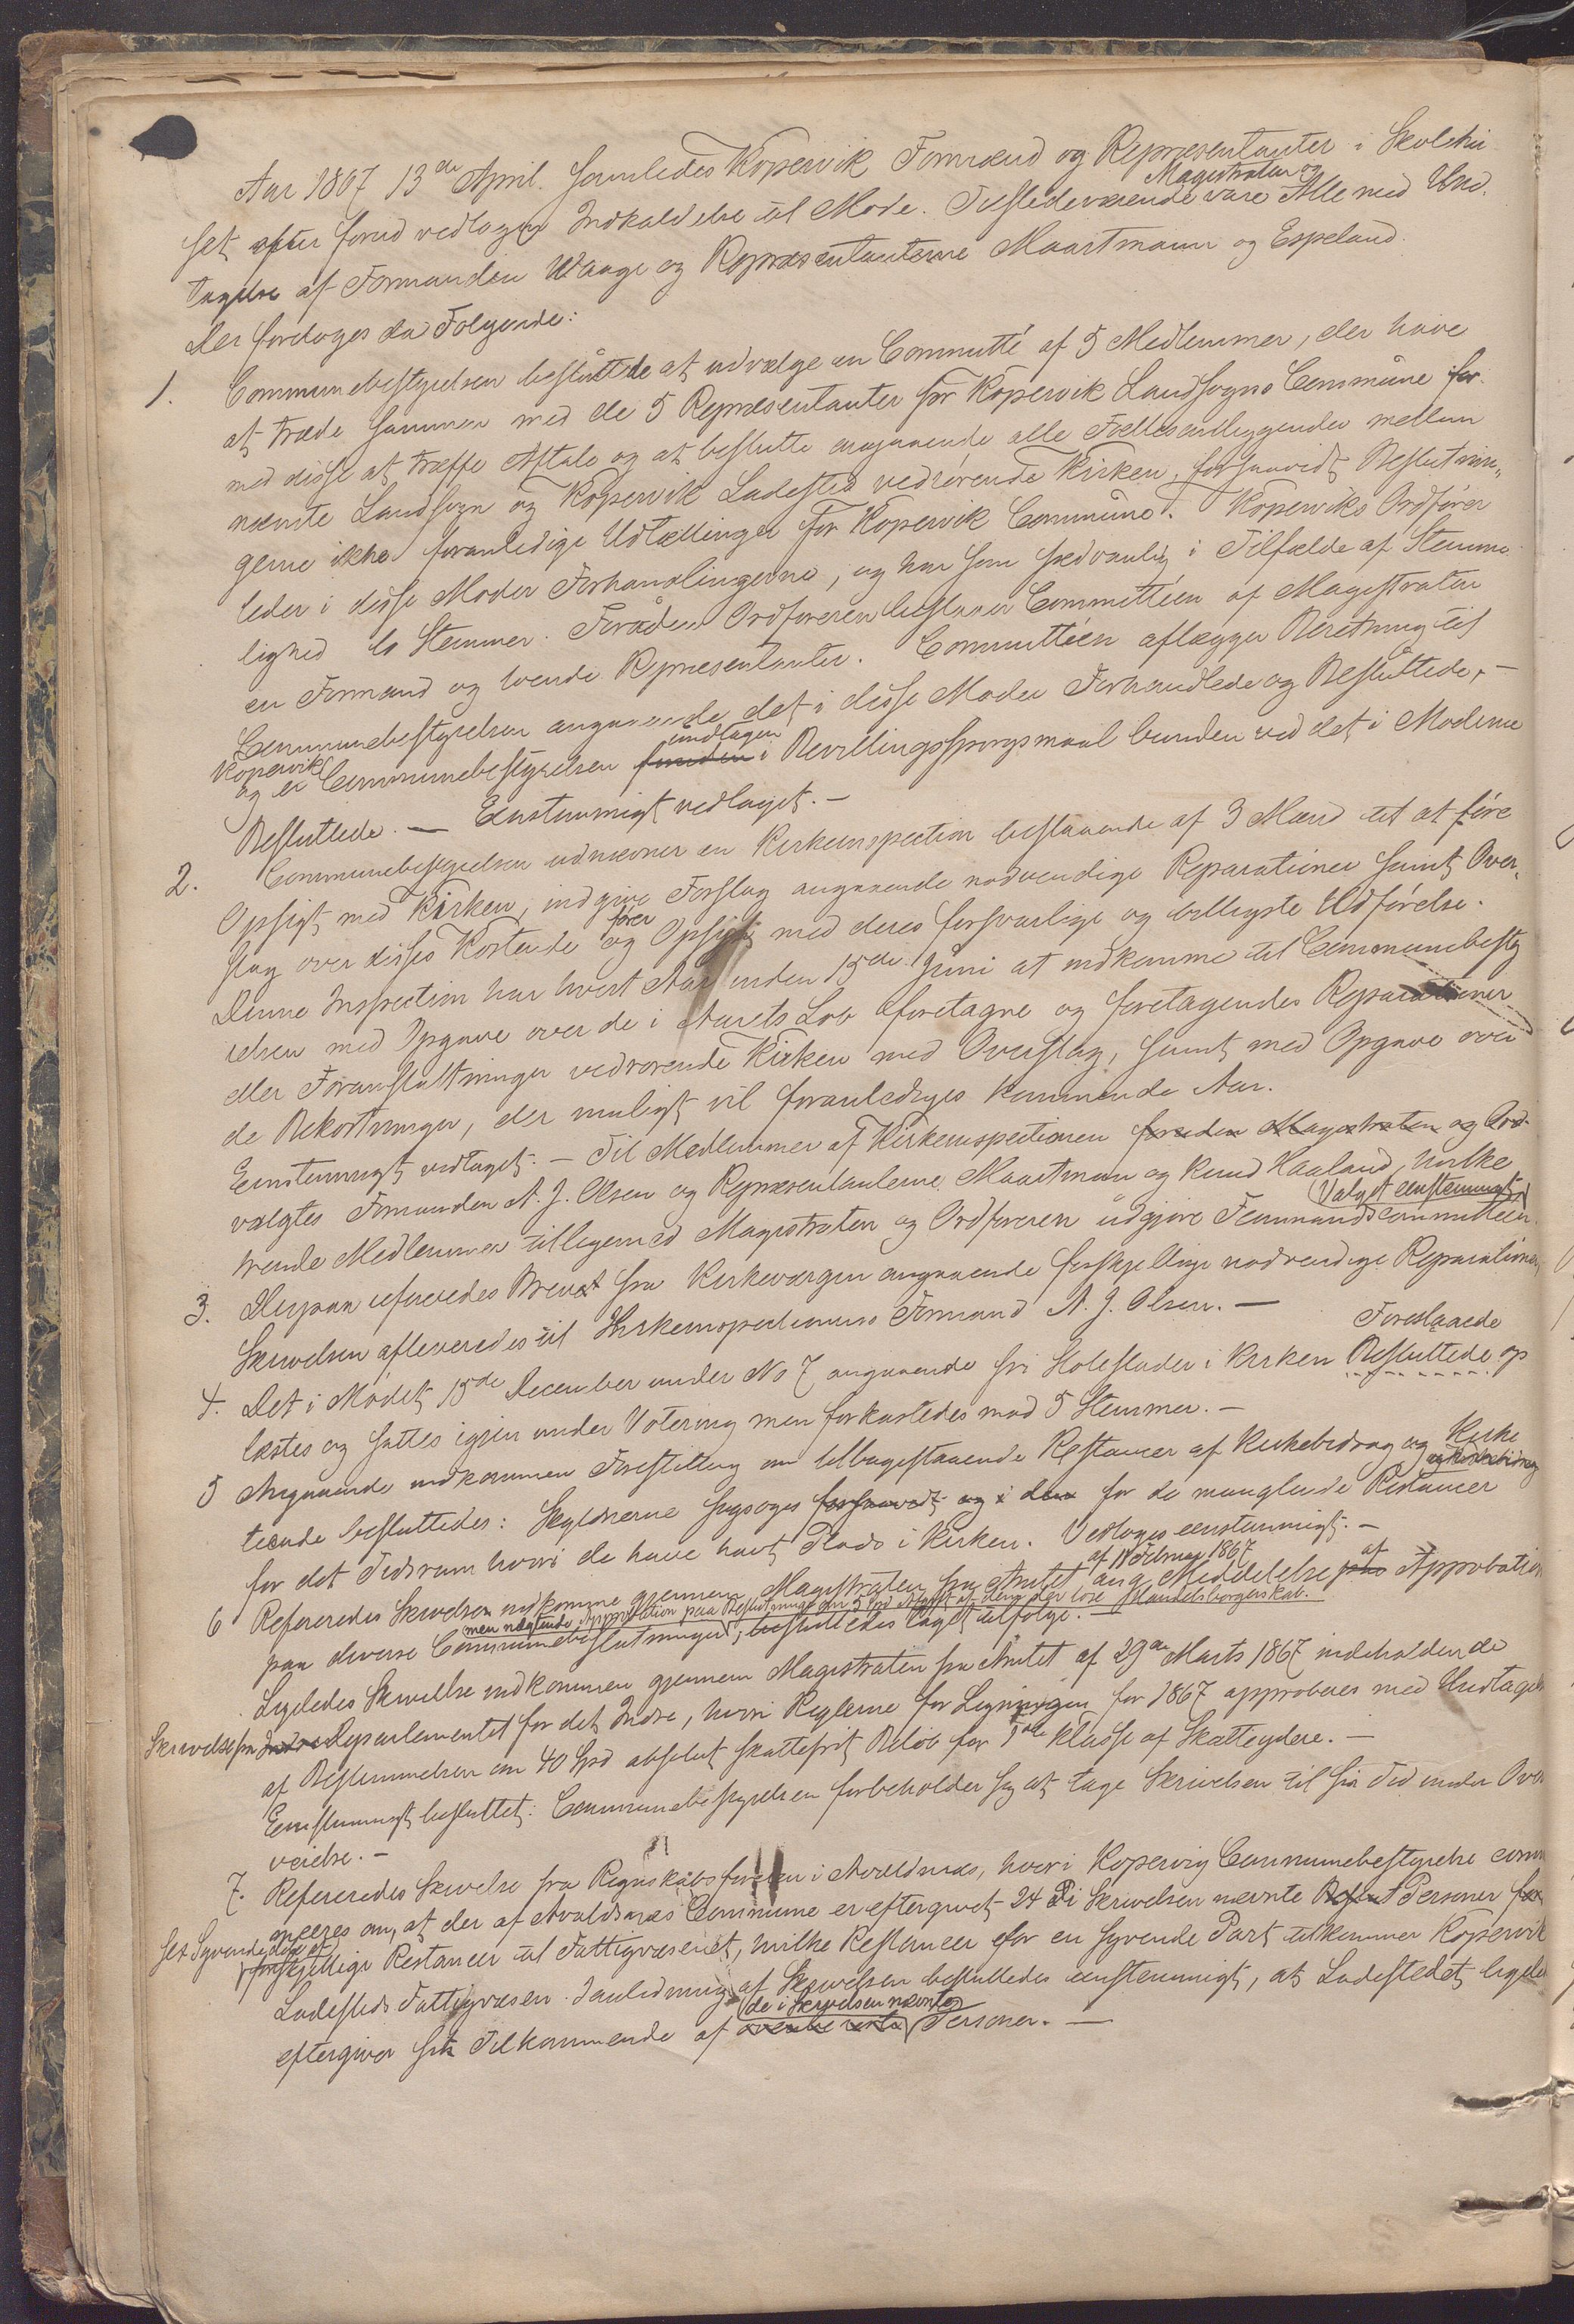 Aar 1867 13de April samledes Kopervik Formænd og Repræsentanter i Skolehu
set efter forud vedtagen Indkaldelse til Møde. Tilstedeværende Magistraten og vare Alle med Und,
tagelse af Formanden Waage og Repræsentanterne Maartmann og Espeland.
Der foretoges da Følgende:
1. Communebestyrelsen besluttede at udvælge en Committé af 5 Medlemmer, der have
at træde sammen med de 5 Repræsentanter for Kopervik Landsogns Commune for
med disse at træffe Aftale og at beslutte angaaende alle Fællesanliggender mellem
nævnte Landsogn og Kopervik Ladested vedrørende Kirken, forsaavidt Beslutnin,,
gerne ikke foranledige Udtællinger for Kopervik Commune. Koperviks Ordfører
leder i disse Møder Forhandlingerne, og har som sædvanlig i Tilfælde af Stemme
lighed to Stemmer. Foruden Ordføreren bestaaer Committéen af Magistraten
en Formand og tvende Repræsentanter. Committéen aflægger Beretning til
Communebestyrelsen angaaende det i disse Møder Forhandlede og Besluttede, –
og er Koperviks Communebestyrelsen foruden undtagen i Bevillingsspørgsmaal bunden ved det i Møderne
Besluttede. — Eenstemmigt vedtaget. –
2. Communebestyrelsen udnævner en Kirkeinspection bestaaende af 3 Mænd til at føre
Opsigt med Kirken, indgive Forslag angaaende nødvendige Reparationer samt Over,
slag over disses Kostende og fører Opsigt med deres forsvarlige og billigste Udførelse.
Denne Inspection har hvert Aar inden 15de Juni at indkomme til Communebesty
relsen med Opgave over de i Aarets Løb foretagne og foretagendes Reparationer
eller Foranstaltninger vedrørende Kirken med Overslag, samt med Opgave over
de Bekostninger, der muligt vil foranlediges kommende Aar.
Eenstemmigt vedtaget. – Til Medlemmer af Kirkeinspectionen foruden Magistraten og Ord-
valgtes Formanden A. J. Olsen og Repræsentanterne Maartmann og Knud Haaland, hvilke
trende Medlemmer tilligemed Magistraten og Ordføreren udgjøre Femmandscommitteen. (Valget eenstemmigt)
3. Derpaa refereredes Brevet fra Kirkeværgen angaaende forskjellige nødvendige Reparationer,
Skrivelsen afleveredes til Kirkeinspectionens Formand A. J. Olsen. —
4. Det i Mødet 15de December under No 7 angaaende fri Stolestader i Kirken Besluttede Foreslaaede op
læstes og sattes igjen under Votering men forkastedes mod 5 Stemmer. –
5 Angaaende indkommen Forestilling om tilbagestaaende Restancer af Kirkebidrag og Kirke
tiende besluttedes: Skyldnerne sagsøges forsaavidt og i den for de manglende Restancer
for det Tidsrum hvori de have havt Plads i Kirken. Vedtoges eenstemmigt. –
6 Refereredes Skrivelse indkomne gjennem Magistraten fra Amtet af 18 Februar 1867 ang Meddelelse paa af Approbation
paa diverse Communebeslutninger, men nægtende Approbation paa Beslutninger om 5 Spd Afgift af dem der løse Handelsborgerskab. besluttedes taget tilfølge. –
Ligeledes Skrivelse indkommen gjennem Magistraten fra Amtet af 29de Marts 1867 indeholdende
Skrivelse fra Indre Departementet for det Indre, hvori Reglerne for Ligningen for 1867 approberes med Undtagelse
af Bestemmelsen om 40 Spd absolut skattefrit Beløb for 1ste Klasse af Skatteydere. –
Eenstemmigt besluttet: Communebestyrelsen forbeholder sig at tage Skrivelsen til sin Tid under Over
veielse. –
7. Refereredes Skrivelse fra Regnskabsføreren i Avaldsnæs, hvori Kopervig Communebestyrelse comm
uniceres om, at der af Avaldsnæs Commune er eftergivet 24 i Skrivelsen nævnte Personer for
forskjellige Restancer til Fattigvæsenet, hvilke Restancer for en syvende Part tilkommer Kopervik
Ladesteds Fattigvæsen. I Anledning af Skrivelsen besluttedes eenstemmigt, at Ladestedet ligele
eftergiver sit Tilkommende af ovennævnte de i Skrivelsen nævnte Personer. —